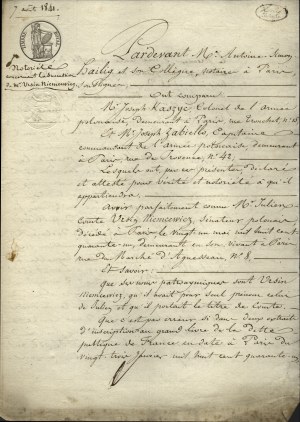 7 août 1841.
Notoriété
concernant le décès
de Mr Ursin Niemcewicz
Pardevant Me Antoine Aimé
Hailig et son Collègue, notaires à Paris
soussignés
Ont comparu
Mr Joseph Kaszyc Colonel de l'armée
polonaise, demeurant à Paris, rue
Et Mr Joseph Zabiello, Capitaine
commandant de l'armée polonaise, demeurant
à Paris, rue de Provence, no 42,
Lesquels ont, par ces présentes, déclaré
et attesté pour vérité et notoriété à qui il
appartiendra
Avoir parfaitement connu Mr Julien
comte Ursin Niemcewicz, sénateur polonais
décédé à Paris, le vingt un mai mil huit cent
quarante un, demeurant en son vivant à Paris
rue du Marché d'Aguesseau, no 8,
Et savoir:
Que ses noms patronymiques sont Ursin
Niemcewicz, qu'il avait pour seul prénom celui
de Julien et qu'il portait le titre de comte.
Que c'est par erreur si dans deux extraits
d'inscription au grand livre de la dette
publique de France en date à Paris du
vingt trois janvier mil huit cent quarante un